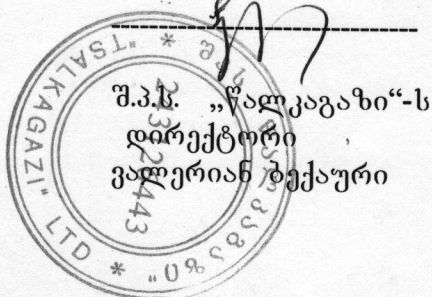 შ.პ.ს. „წალკაგაზი“-ს
დირექტორი
ვალერიან ბექაური
"TSALKAGAZI" LTD